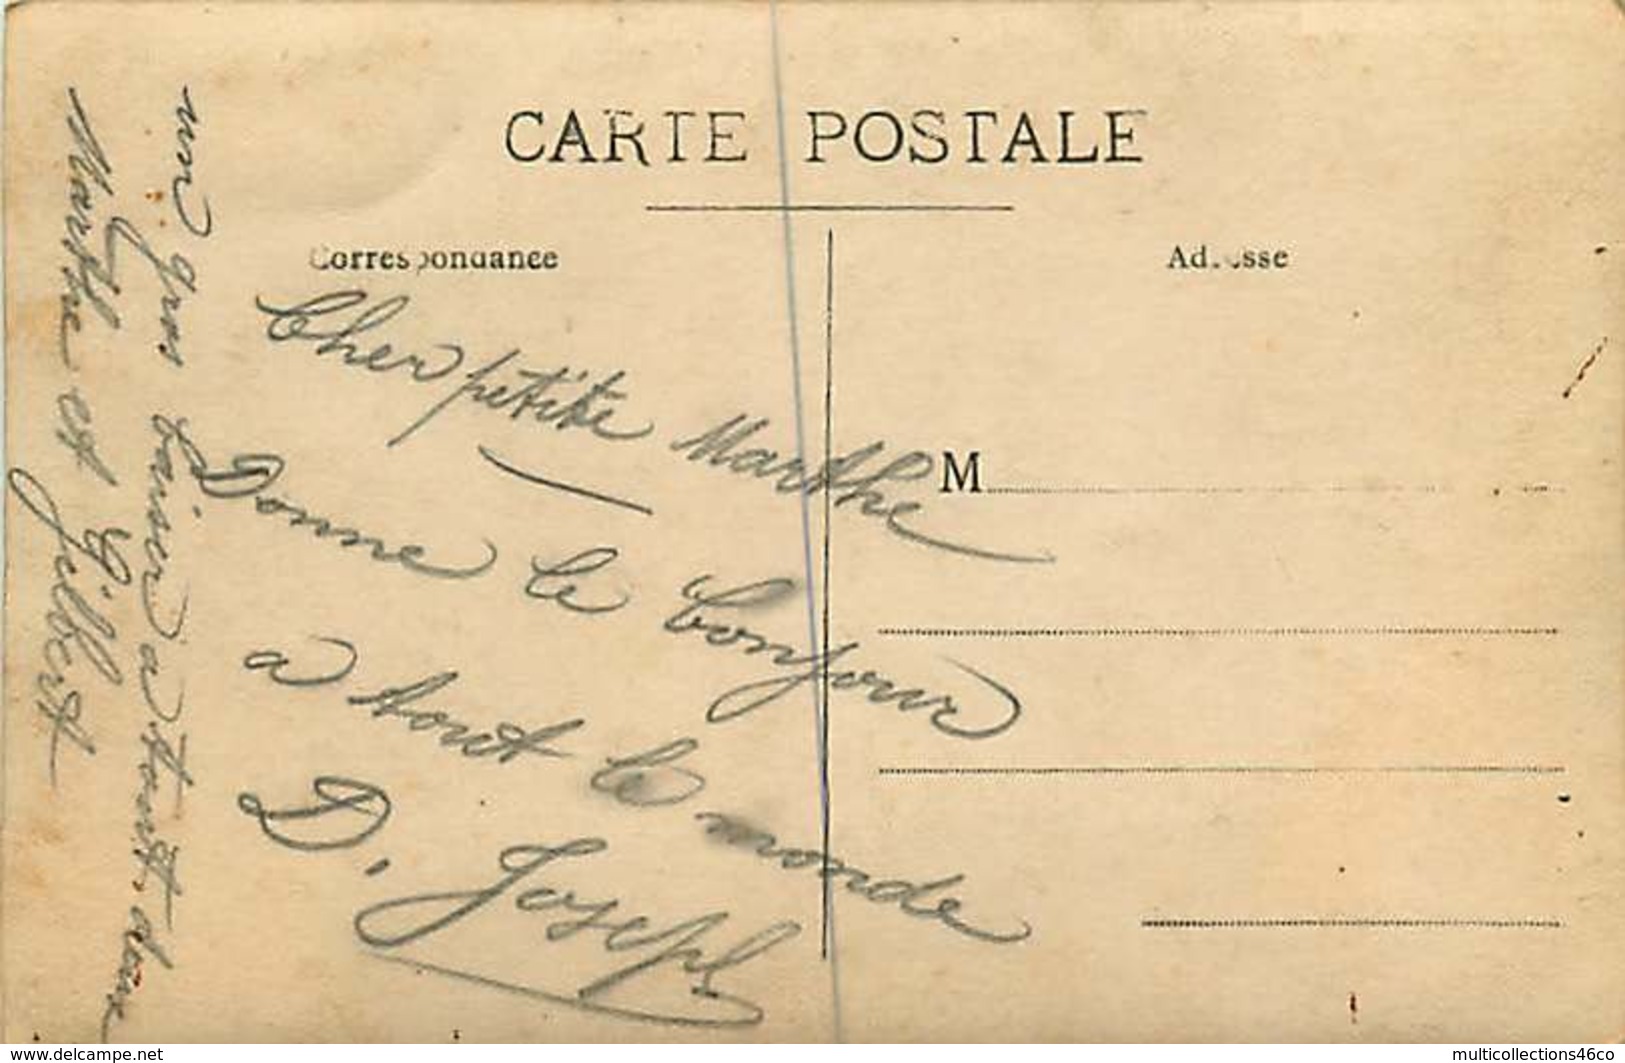 CARTE POSTALE
Correspondance
Adresse
M
Cher petite Marthe
Donne le bonjour
a tout le monde
D. Joseph
un gros baiser a tout. deux
Marthe et Gilbert
www.delcampe.net
multicollections46co